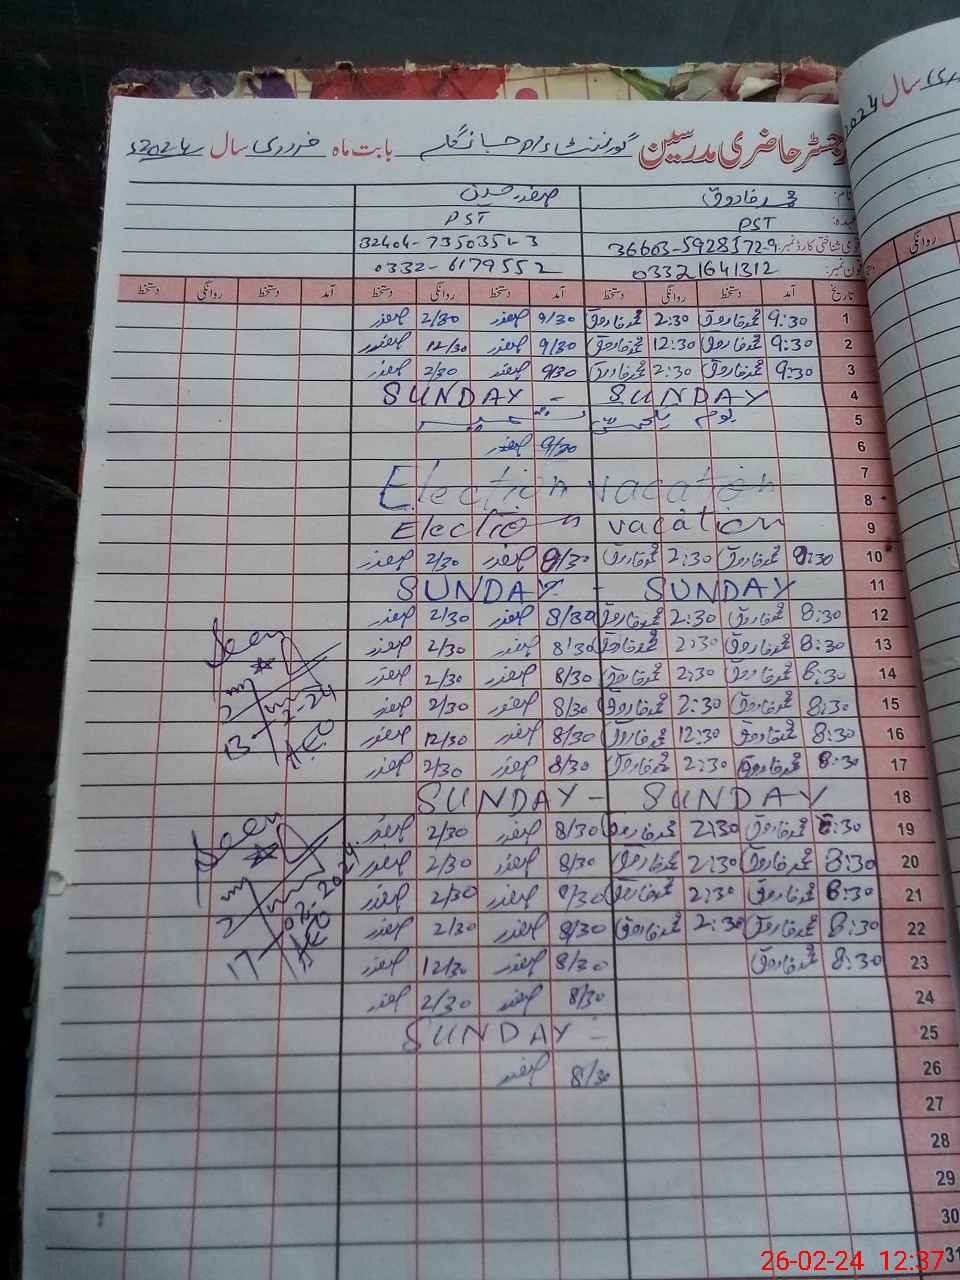 رجسٹر حاضری مدرسین گورنمنٹ بابت ماہ فروری سال 2024ء
نام: محمد فاروق صفدر حسین
عہدہ: PST PST
قومی شناختی کارڈ نمبر: 36603-5928572-9 32404-7350351-3
فون نمبر: 03321641312 0332-6179552
تاریخ آمد دستخط روانگی دستخط آمد دستخط روانگی دستخط آمد دستخط روانگی دستخط
1 9:30 محمد فاروق 2:30 محمد فاروق 9/30 صفدر 2/30 صفدر
2 9:30 محمد فاروق 12:30 محمد فاروق 9/30 صفدر 12/30 صفدر
3 9:30 محمد فاروق 2:30 محمد فاروق 9/30 صفدر 2/30 صفدر
4 SUNDAY - SUNDAY
5 یوم یکجہتی کشمیر
6 9/30 صفدر
7
8 Election vacation
9 Election vacation
10 9:30 محمد فاروق 2:30 محمد فاروق 9/30 صفدر 2/30 صفدر
11 SUNDAY - SUNDAY
12 8:30 محمد فاروق 2:30 محمد فاروق 8/30 صفدر 2/30 صفدر
13 8:30 محمد فاروق 2:30 محمد فاروق 8/30 صفدر 2/30 صفدر
14 8:30 محمد فاروق 2:30 محمد فاروق 8/30 صفدر 2/30 صفدر
15 8:30 محمد فاروق 2:30 محمد فاروق 8/30 صفدر 2/30 صفدر
16 8:30 محمد فاروق 12:30 محمد فاروق 8/30 صفدر 12/30 صفدر
17 8:30 محمد فاروق 2:30 محمد فاروق 8/30 صفدر 2/30 صفدر
18 SUNDAY - SUNDAY
19 8:30 محمد فاروق 2:30 محمد فاروق 8/30 صفدر 2/30 صفدر
20 8:30 محمد فاروق 2:30 محمد فاروق 8/30 صفدر 2/30 صفدر
21 8:30 محمد فاروق 2:30 محمد فاروق 8/30 صفدر 2/30 صفدر
22 8:30 محمد فاروق 2:30 محمد فاروق 8/30 صفدر 2/30 صفدر
23 8:30 محمد فاروق 8/30 صفدر 12/30 صفدر
24 8/30 صفدر 2/30 صفدر
25 SUNDAY -
26 8/30 صفدر
27
28
29
30
31
Seen
13-2-24
AEO
Seen
17-02-2024
AEO
سال 2024
روانگی
26-02-24 12:37